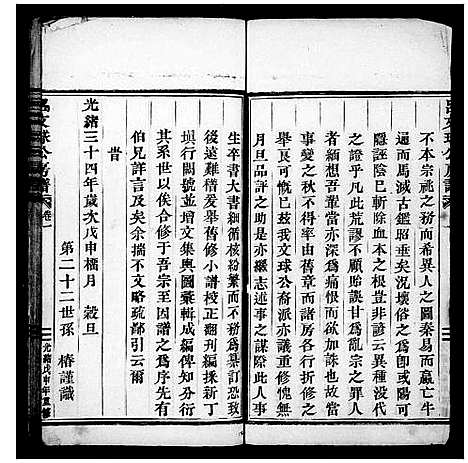 不本宗祧之務而希異人之圖秦易而嬴亡牛
遍而馬滅古鑑昭垂矣況壞俗之為卽或陽可
避誣陰已斬除血本之根豈非諺云世世相傳
之證乎凡此荒謬不願貽誤甘爲亂宗之罪人
者緬想吾輩當亦深爲痛恨而欲加誅也故當
事變之秋不得率由舊章而諸房各行折修之
舉良可慨已茲我文球公裔派亦議重修愧無
月旦品評之助是亦繼志述事之謀際此人事
生卒書大書細循核紛繁而不務爲纂訂恐致
後遠難稽爰舉舊修小譜校正翻刊編採新丁
興行闕號並增文集輿圖藥輯成編俾知分衍
其系世以俟合修于吾宗至因譜之爲序先有
伯兄詳言及矣余揣不文略疏鄙引云爾
昔
光緒三十四年歲次戊申橘月 穀旦
第二十二世孫 椿謹識
文球公房譜 卷一
光緒戊申年重修